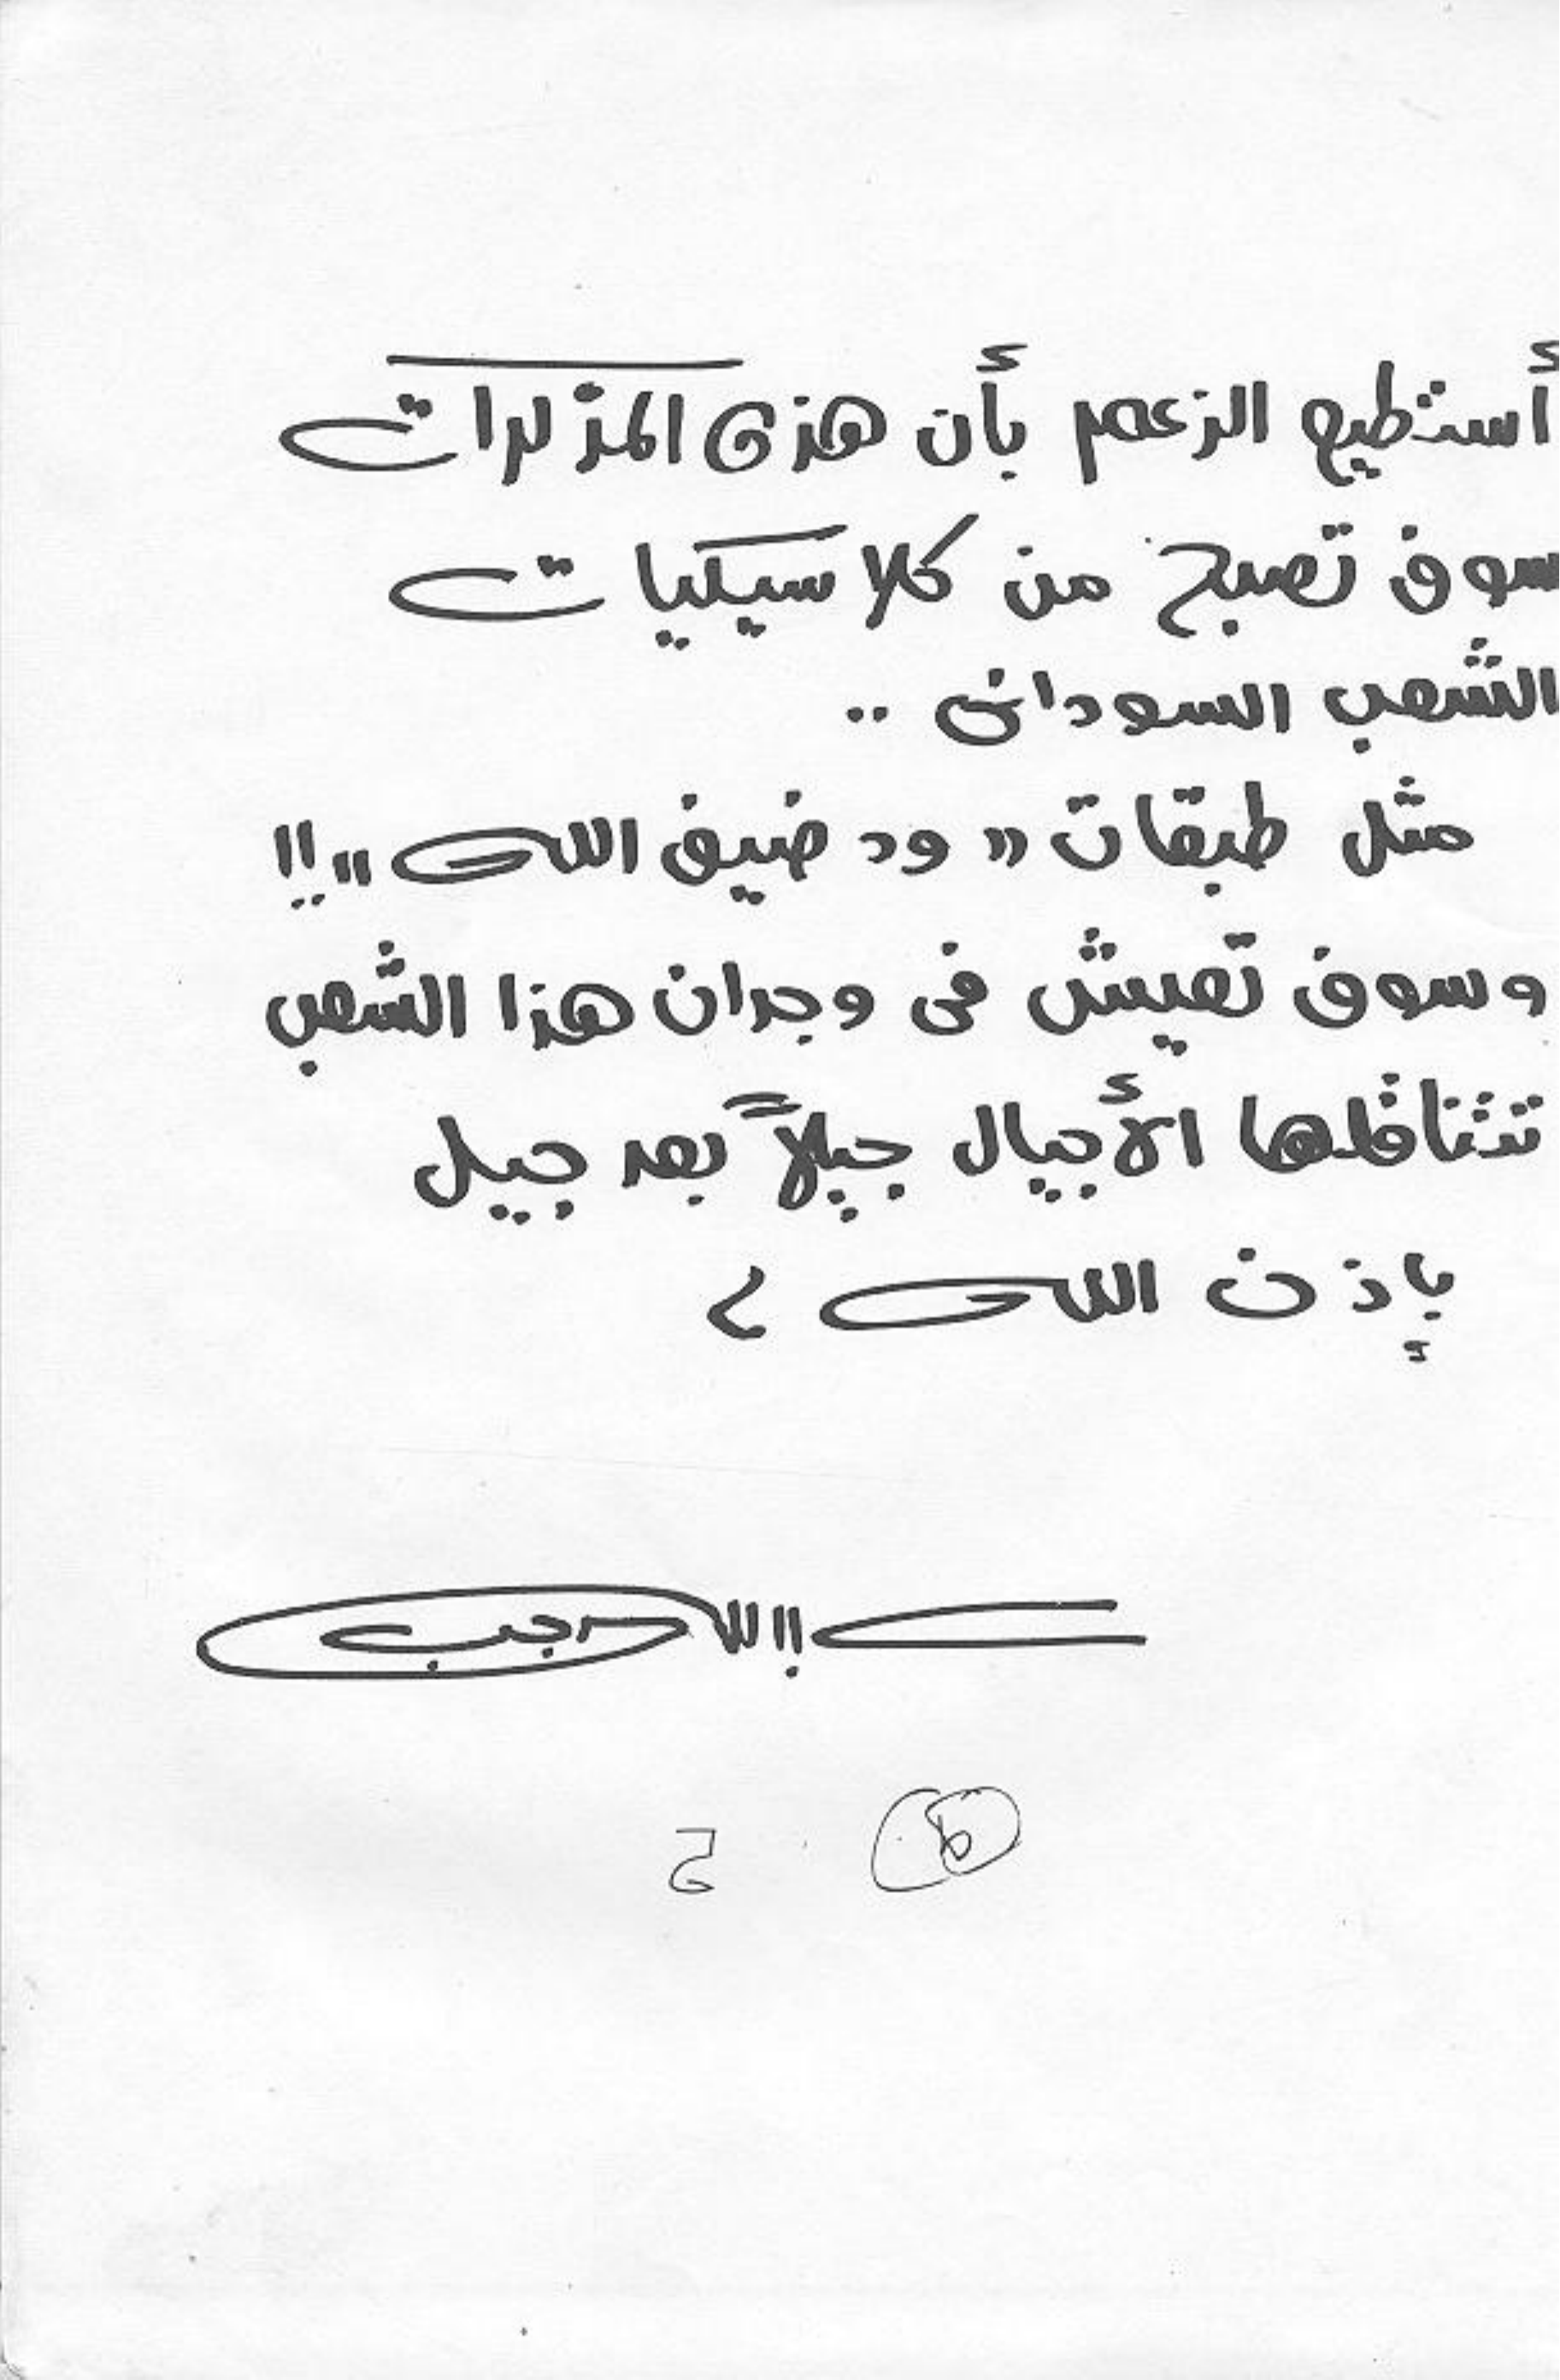 أستطيع الزعم بأن هذه المذكرات
سوف تصبح من كلاسيكيات
الشعب السوداني ..
مثل طبقات « ود ضيف الله » !!
وسوف تعيش فى وجدان هذا الشعب
تتناقلها الأجيال جيلاً بعد جيل
بإذن الله